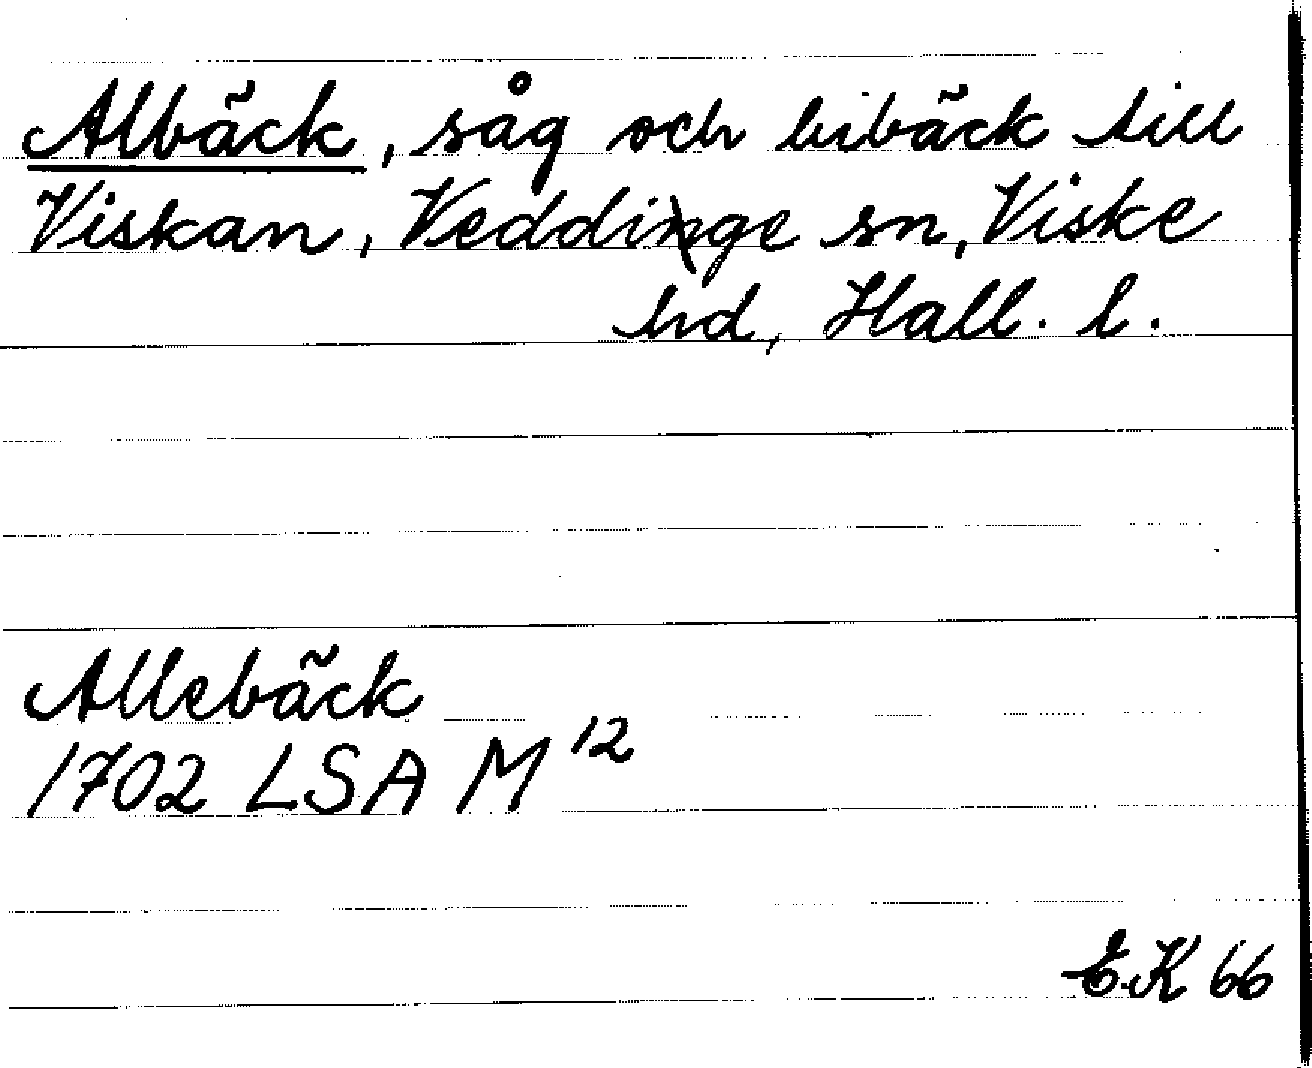 Albäck, såg och bibäck till
Viskan, Veddige sn, Viske
hd, Hall. l.
Allebäck
1702 LSA M 12
E.K 66